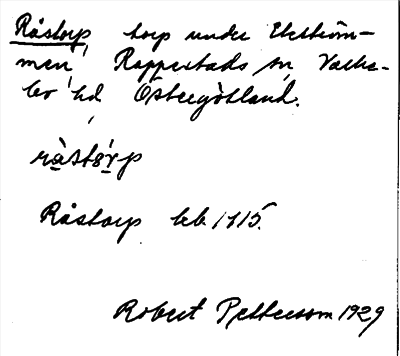 Råstorp, torp under Ekström-
men, Rappestads sn, Valke-
bo hd, Östergötland.
råstòrp
Råstorp lck. 1715.
Robert Pettersson 1929